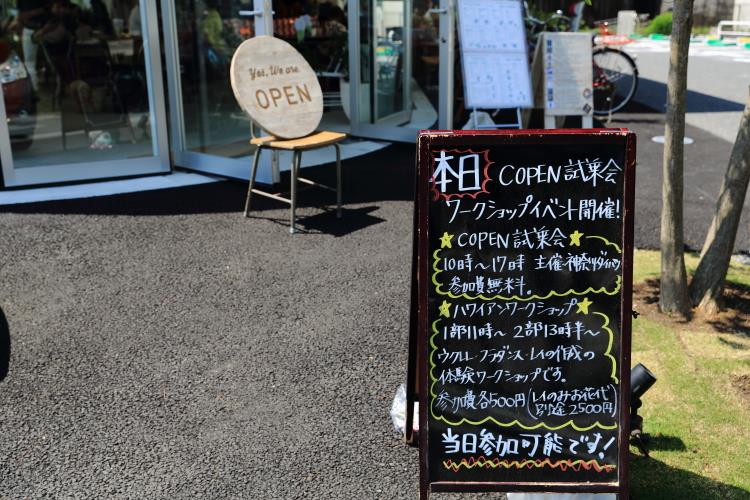 Yes, We are
OPEN
本日 COPEN試乗会
ワークショップイベント開催!
COPEN試乗会
10時〜17時 主催・神奈川ダイハツ
参加費無料。
ハワイアンワークショップ
1部11時〜 2部13時半〜
ウクレレ・フラダンス・レイの作成の
体験ワークショップです。
参加費各500円(レイのみお花代
別途2500円)
当日参加可能です!